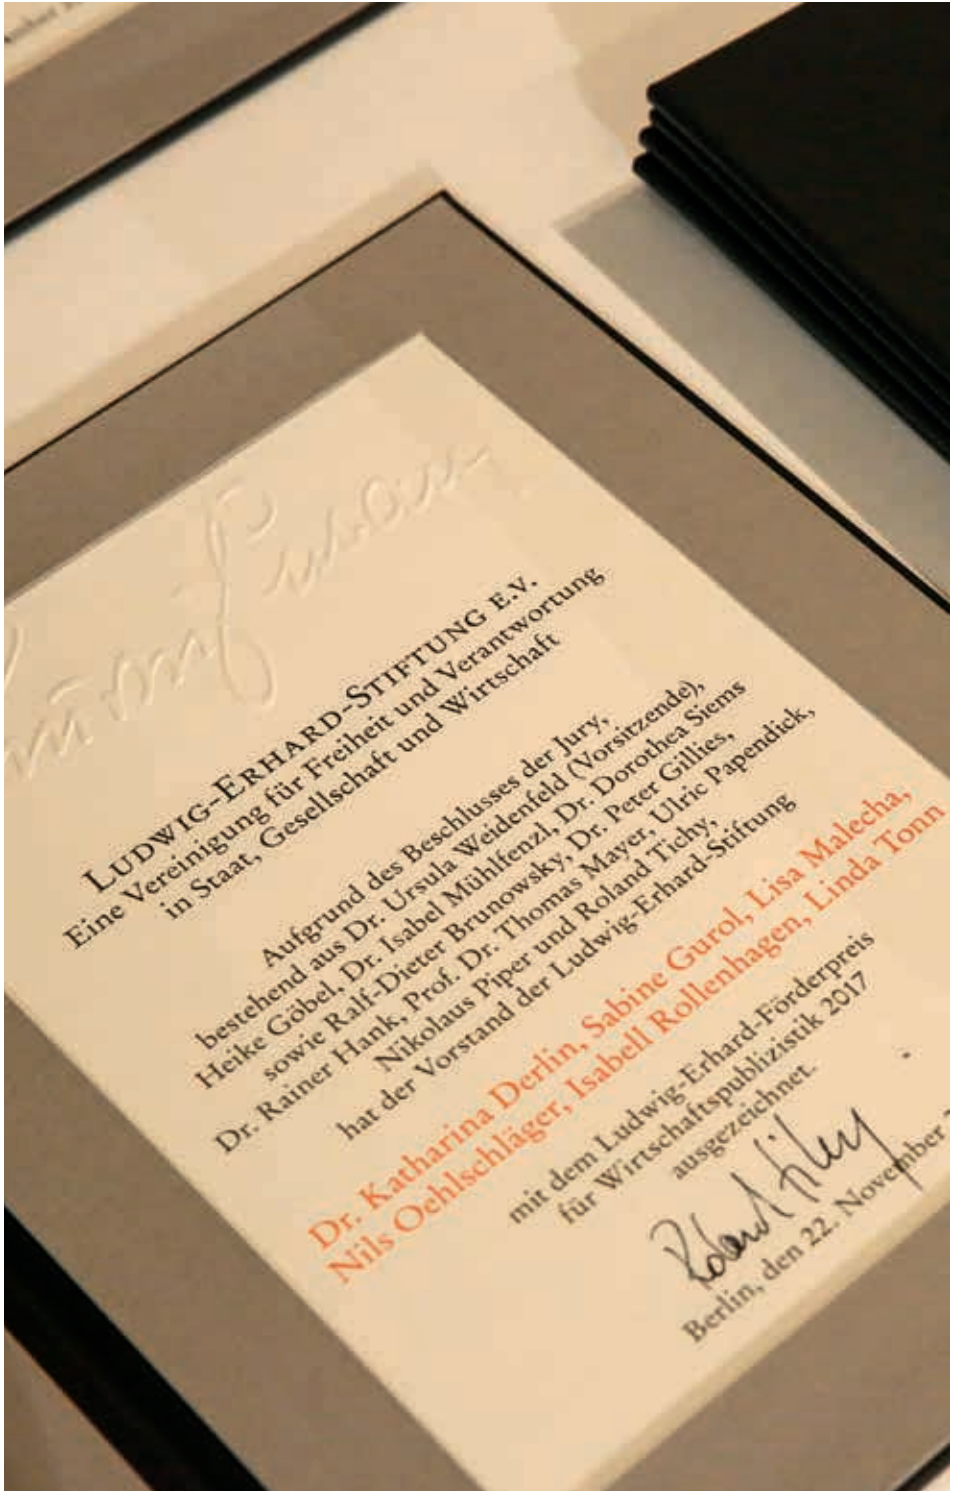 LUDWIG-ERHARD-STIFTUNG E.V.
Eine Vereinigung für Freiheit und Verantwortung
in Staat, Gesellschaft und Wirtschaft
Aufgrund des Beschlusses der Jury,
bestehend aus Dr. Ursula Weidenfeld (Vorsitzende),
Heike Göbel, Dr. Isabel Mühlfenzl, Dr. Dorothea Siems
sowie Ralf-Dieter Brunowsky, Dr. Peter Gillies,
Dr. Rainer Hank, Prof. Dr. Thomas Mayer, Ulric Papendick,
Nikolaus Piper und Roland Tichy,
hat der Vorstand der Ludwig-Erhard-Stiftung
Dr. Katharina Derlin, Sabine Gurol, Lisa Malecha,
Nils Oehlschläger, Isabell Rollenhagen, Linda Tonn
mit dem Ludwig-Erhard-Förderpreis
für Wirtschaftspublizistik 2017
ausgezeichnet.
Roland Tichy
Berlin, den 22. November